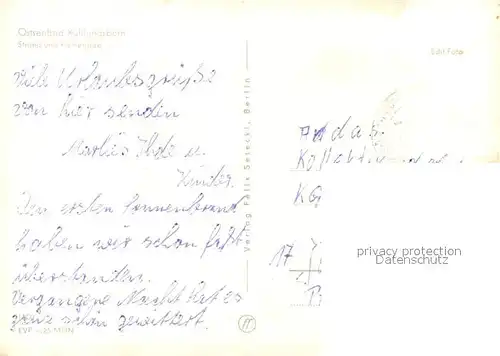 Ostseebad Kühlungsborn
Strand
Echt Foto
Viele Urlaubsgrüße
von hier senden
Marlies Ihde u.
Kinder.
Den ersten Sonnenbrand
haben wir schon fast
überstanden.
Vergangene Nacht hat es
ganz schön gewittert.
EVP
Verlag Felix Setecki, Berlin
An das
KG
17
privacy protection
Datenschutz